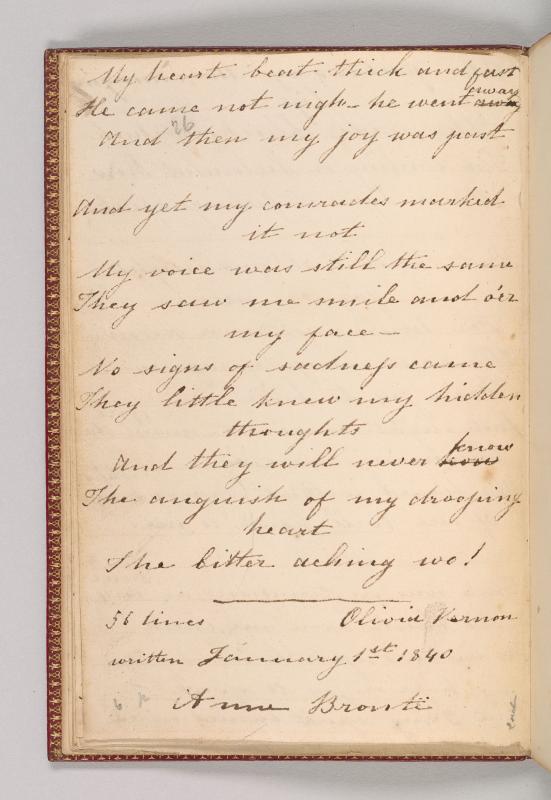 My heart beat thick and fast
away
He came not nigh – he went away
26
And then my joy was past
And yet my comrades markid
it not
My voice was still the same
They saw me smile and o'er
my face –
No signs of sadneſs came
They little knew my hidden
thoughts
And they will never
know
The anguish of my drooping
heart
The bitter aching wo!
56 lines Olivia Vernon
written January 1st 1840
Anne Brontë